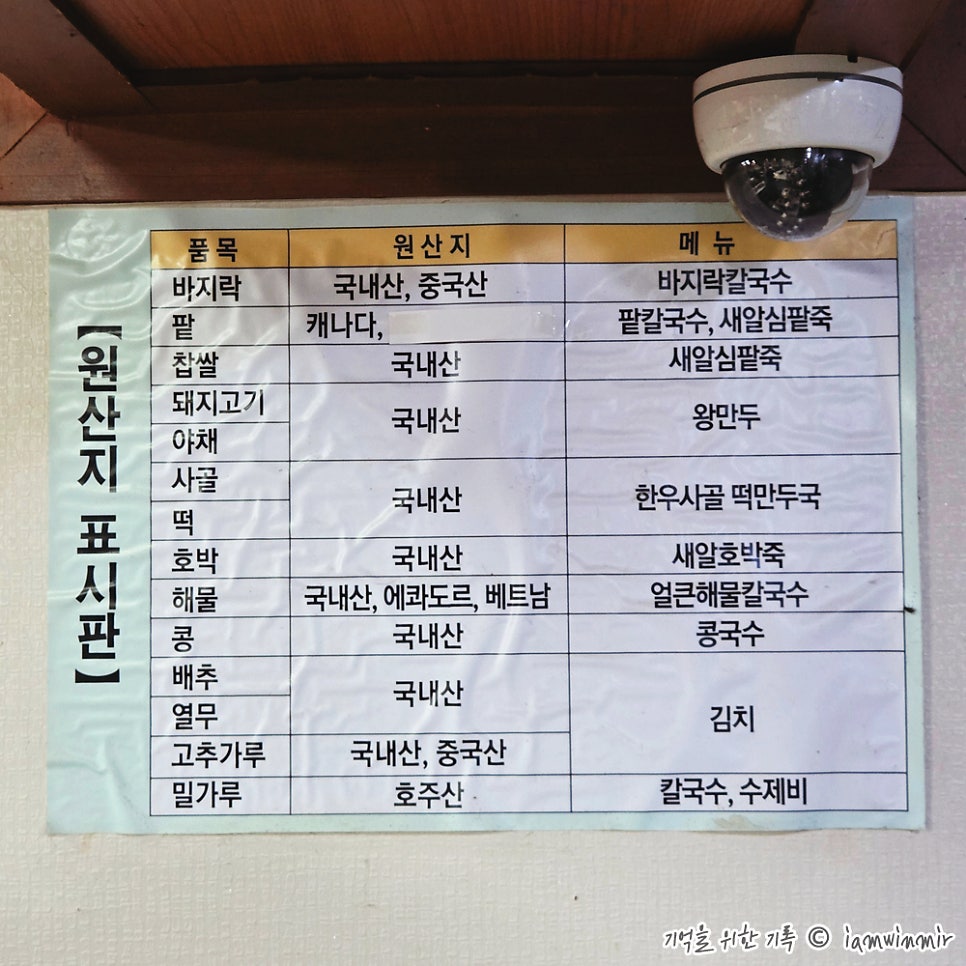 【원산지 표시판】
품목 원산지 메뉴
바지락 국내산, 중국산 바지락칼국수
팥 캐나다, 팥칼국수, 새알심팥죽
찹쌀 국내산 새알심팥죽
돼지고기
야채
국내산 왕만두
사골
떡
국내산 한우사골 떡만두국
호박 국내산 새알호박죽
해물 국내산, 에콰도르, 베트남 얼큰해물칼국수
콩 국내산 콩국수
배추
열무
국내산
고추가루 국내산, 중국산
김치
밀가루 호주산 칼국수, 수제비
기억을 위한 기록 © iamwinmir